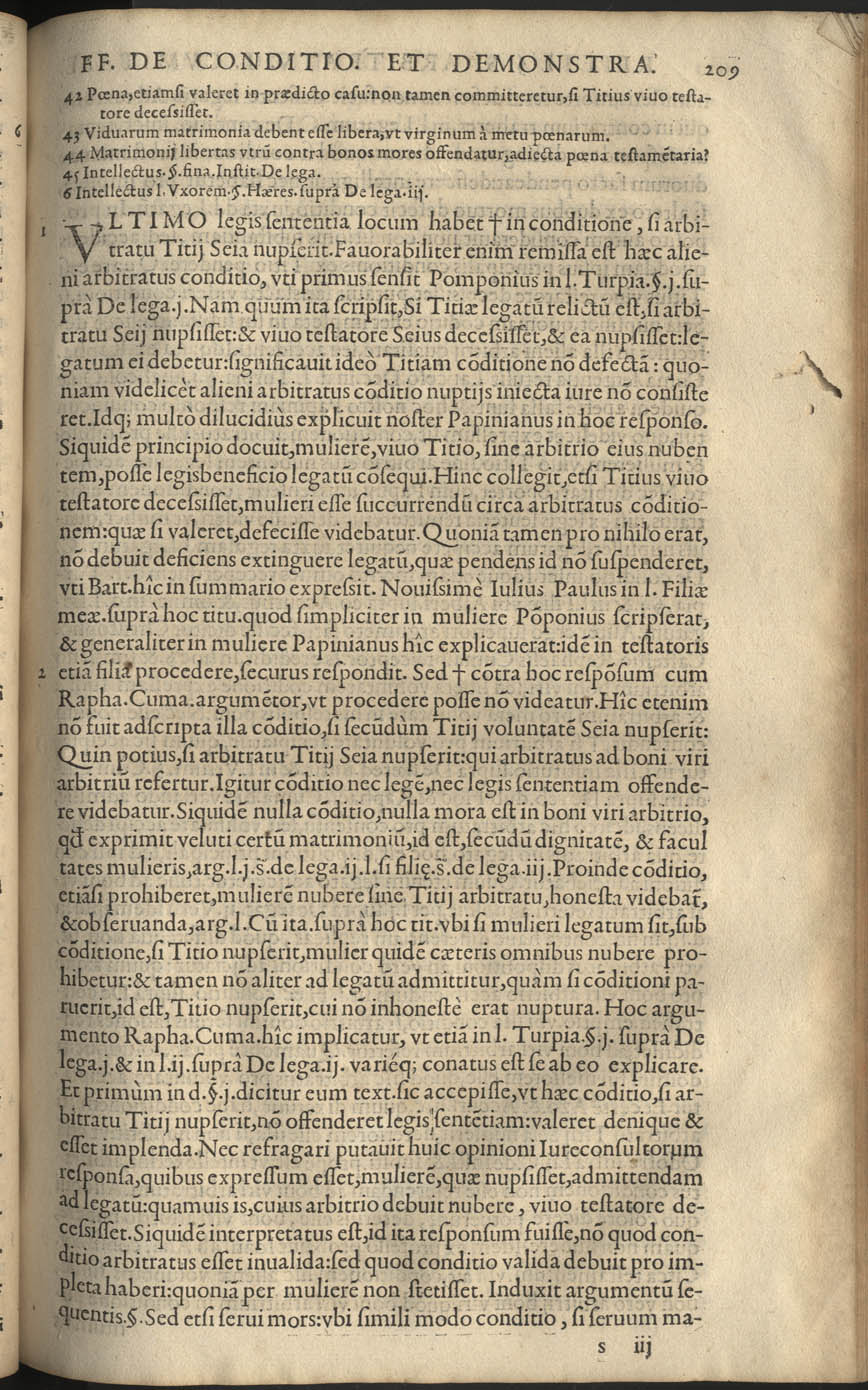 FF. DE CONDITIO. ET DEMONSTRA. 209
42 Pœna,etiamsi valeret in prædicto casu:non tamen committeretur,si Titius viuo testa-
tore decessisset.
43 Viduarum matrimonia debent esse libera,vt virginum à metu pœnarum.
44 Matrimonij libertas vtrū contra bonos mores offendatur,adiecta pœna testamētaria?
45 Intellectus.§.fina.Instit.De lega.
6 Intellectus l. Vxorem.§.Hæres.suprà De lega.iij.
1 VLTIMO legis sententia locum habet † in conditione, si arbi-
tratu Titij Seia nupserit.Fauorabiliter enim remissa est hæc alie-
ni arbitratus conditio, vti primus sensit Pomponius in l.Turpia.§.j.su-
prà De lega.j.Nam quum ita scripsit,Si Titiæ legatū relictū est,si arbi-
tratu Seij nupsisset:& viuo testatore Seius decessisset,& ea nupsisset:le-
gatum ei debetur:significauit ideò Titiam cōditione nō defectā: quo-
niam videlicèt alieni arbitratus cōditio nuptijs iniecta iure nō consiste
ret.Idq; multò dilucidiùs explicuit noster Papinianus in hoc responso.
Siquidē principio docuit,mulierē,viuo Titio, sine arbitrio eius nuben
tem,posse legis beneficio legatū cōsequi.Hinc collegit,etsi Titius viuo
testatore decessisset,mulieri esse succurrendū circa arbitratus cōditio-
nem:quæ si valeret,defecisse videbatur.Quoniā tamen pro nihilo erat,
nō debuit deficiens extinguere legatū,quæ pendens id nō suspenderet,
vti Bart.hîc in summario expressit. Nouissimè Iulius Paulus in l. Filiæ
meæ.suprà hoc titu.quod simpliciter in muliere Pōponius scripserat,
& generaliter in muliere Papinianus hîc explicauerat:idē in testatoris
2 etiā filia procedere,securus respondit. Sed † cōtra hoc respōsum cum
Rapha.Cuma.argumētor,vt procedere posse nō videatur.Hîc etenim
nō fuit adscripta illa cōditio,si secūdùm Titij voluntatē Seia nupserit:
Quin potius,si arbitratu Titij Seia nupserit:qui arbitratus ad boni viri
arbitriū refertur.Igitur cōditio nec legē,nec legis sententiam offende-
re videbatur.Siquidē nulla cōditio,nulla mora est in boni viri arbitrio,
qđ exprimit veluti certū matrimoniū,id est,secūdū dignitatē, & facul
tates mulieris,arg.l.j.s̃.de lega.ij.l.si filię.s̃.de lega.iij.Proinde cōditio,
etiāsi prohiberet,mulierē nubere sine Titij arbitratu,honesta videbat̃,
& obseruanda,arg.l.Cū ita.suprà hoc tit.vbi si mulieri legatum sit,sub
cōditione,si Titio nupserit,mulier quidē cæteris omnibus nubere pro-
hibetur:& tamen nō aliter ad legatū admittitur,quàm si cōditioni pa-
ruerit,id est,Titio nupserit,cui nō inhonestè erat nuptura. Hoc argu-
mento Rapha.Cuma.hîc implicatur, vt etiā in l. Turpia.§.j. suprà De
lega.j.& in l.ij.suprà De lega.ij. variéq; conatus est se ab eo explicare.
Et primùm in d.§.j.dicitur eum text.sic accepisse,vt hæc cōditio,si ar-
bitratu Titij nupserit,nō offenderet legis sentētiam:valeret denique &
esset implenda.Nec refragari putauit huic opinioni Iureconsultorum
responsa,quibus expressum esset,mulierē,quæ nupsisset,admittendam
ad legatū:quamuis is,cuius arbitrio debuit nubere, viuo testatore de-
cessisset.Siquidē interpretatus est,id ita responsum fuisse,nō quod con-
ditio arbitratus esset inualida:sed quod conditio valida debuit pro im-
pleta haberi:quoniā per mulierē non stetisset. Induxit argumentū se-
quentis.§.Sed etsi serui mors:vbi simili modo conditio, si seruum ma-
s iij